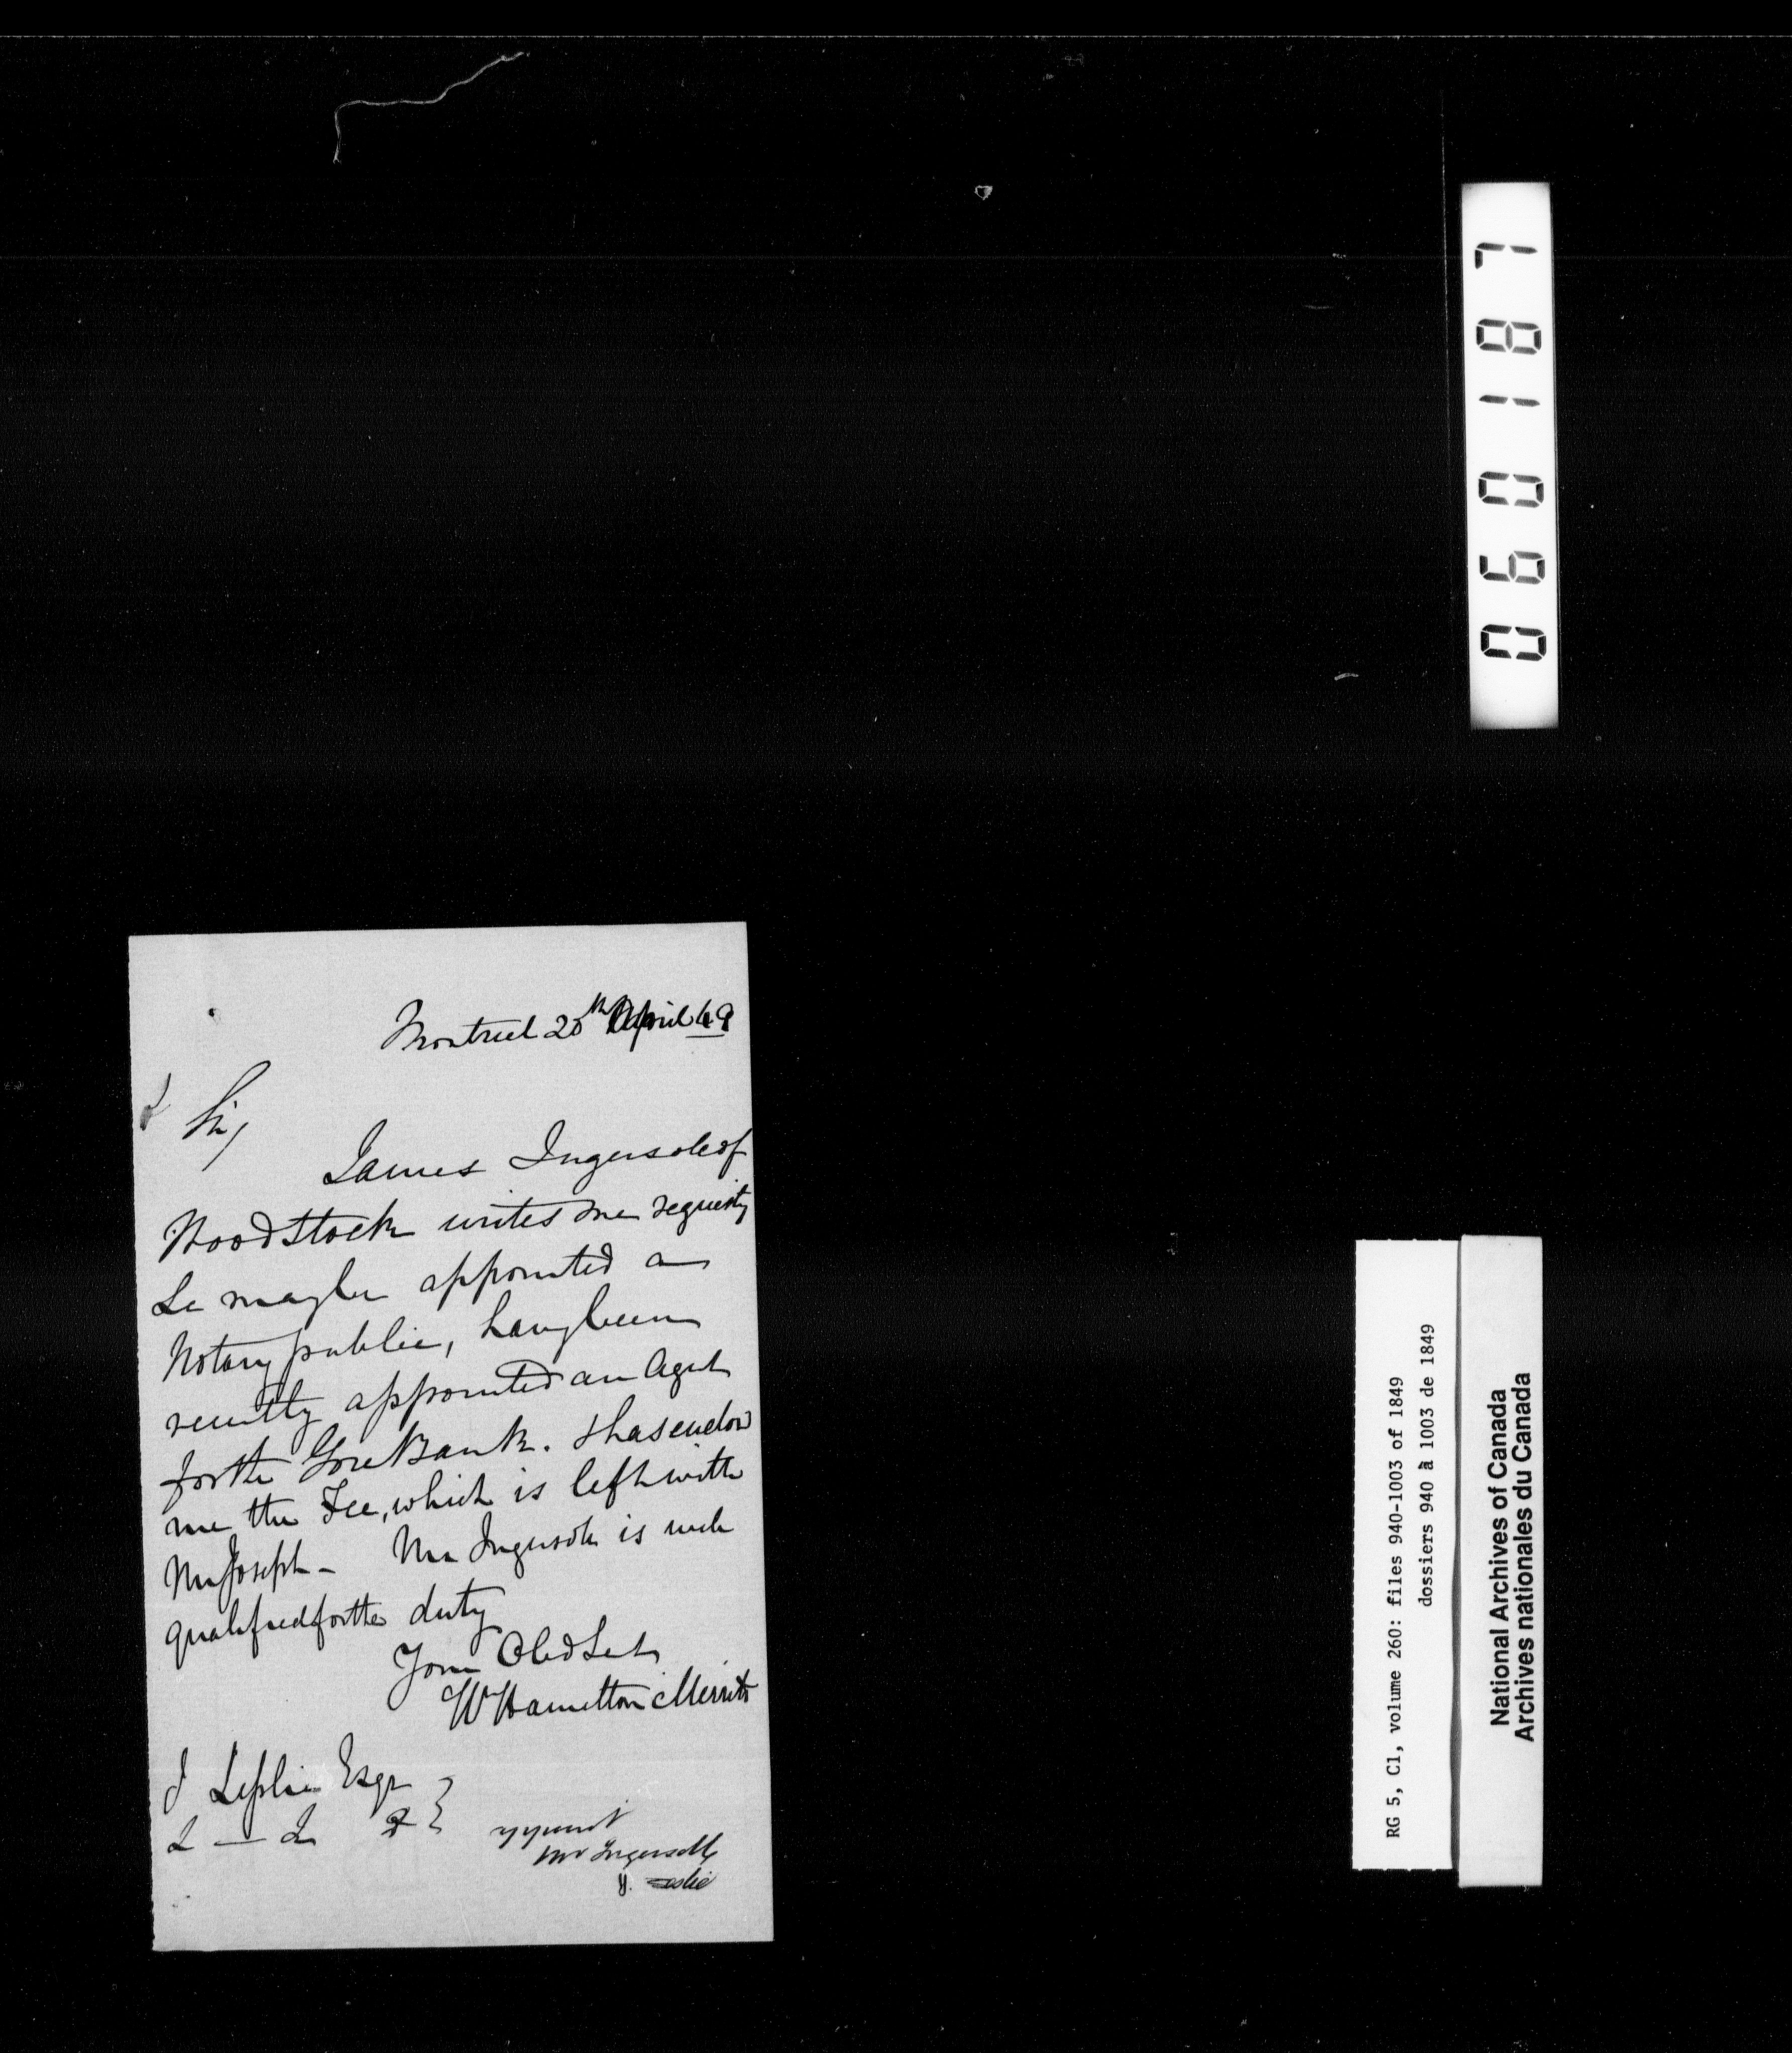 Montreal 20th April 49
Sir,
James Ingersole of
Woodstock writes me requesting
he may be appointed a
Notary public, having been
recently appointed an Agent
for the Gore Bank. & has enclosed
me the Fee, which is left with
Mr Joseph - Mr Ingersole is well
qualified for the duty
Your Obed Set
W Hamilton Merritt
J Leslie Esqr
Appoint
Mr Ingersoll
J. Leslie
060187
RG 5, C1, volume 260: files 940-1003 of 1849
dossiers 940 à 1003 de 1849
National Archives of Canada
Archives nationales du Canada